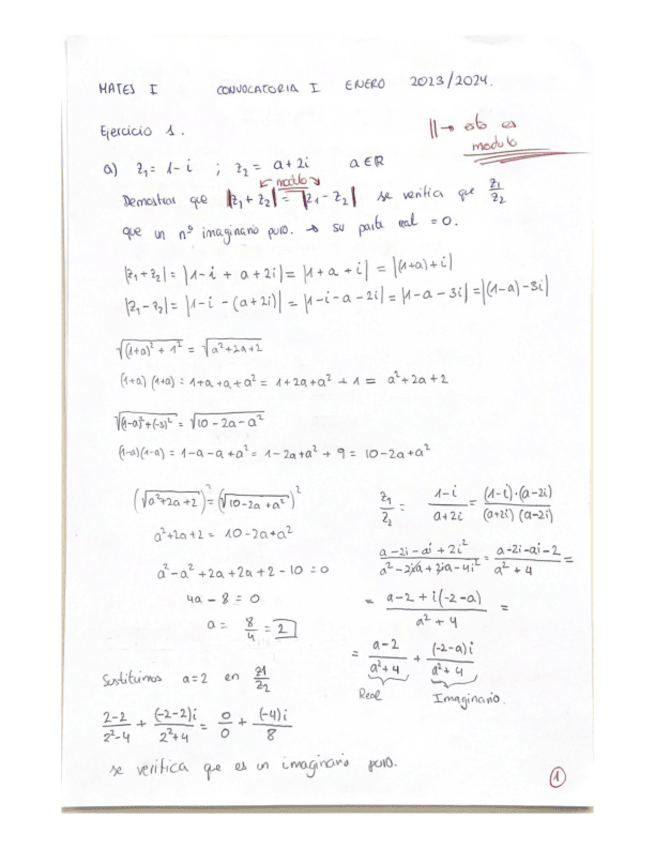 MATES I CONVOCATORIA I ENERO 2023/2024.
Ejercicio 1.
||→ esto es
modulo
a) z₁ = 1-i ; z₂ = a+2i a∈ℝ
← modulo →
Demostrar que |z₁+z₂| = |z₁-z₂| se verifica que z₁/z₂
que un nº imaginario puro. → su parte real = 0.
|z₁+z₂| = |1-i + a+2i| = |1+a+i| = |(1+a)+i|
|z₁-z₂| = |1-i-(a+2i)| = |1-i-a-2i| = |1-a-3i| = |(1-a)-3i|
√((1+a)² + 1²) = √(a²+2a+2)
(1+a)(1+a) = 1+a+a+a² = 1+2a+a² + 1 = a²+2a+2
√((1-a)²+(-3)²) = √(10-2a-a²)
(1-a)(1-a) = 1-a-a+a² = 1-2a+a² + 9 = 10-2a+a²
(√(a²+2a+2))² = (√(10-2a+a²))²
a²+2a+2 = 10-2a+a²
a²-a²+2a+2a+2-10 = 0
4a-8 = 0
a = 8/4 = 2
z₁/z₂ = (1-i)/(a+2i) = (1-i)·(a-2i)/(a+2i)(a-2i)
(a-2i-ai+2i²)/(a²-2ia+2ia-4i²) = (a-2i-ai-2)/(a²+4) =
= (a-2+i(-2-a))/(a²+4) =
= (a-2)/(a²+4) + (-2-a)i/(a²+4)
Real Imaginario.
Sustituimos a=2 en z₁/z₂
(2-2)/(2²-4) + (-2-2)i/(2²+4) = 0/0 + (-4)i/8
se verifica que es un imaginario puro.
1